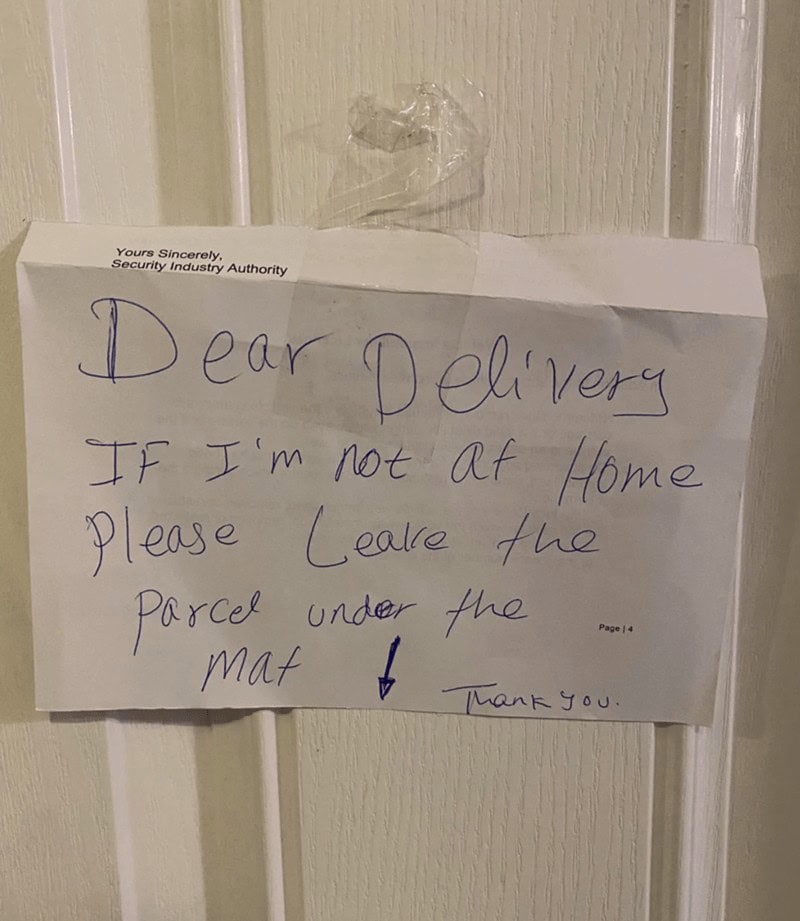 Yours Sincerely,
Security Industry Authority
Dear Delivery
IF I'm not at Home
please Leave the
parcel under the
Page | 4
mat
Thank you.